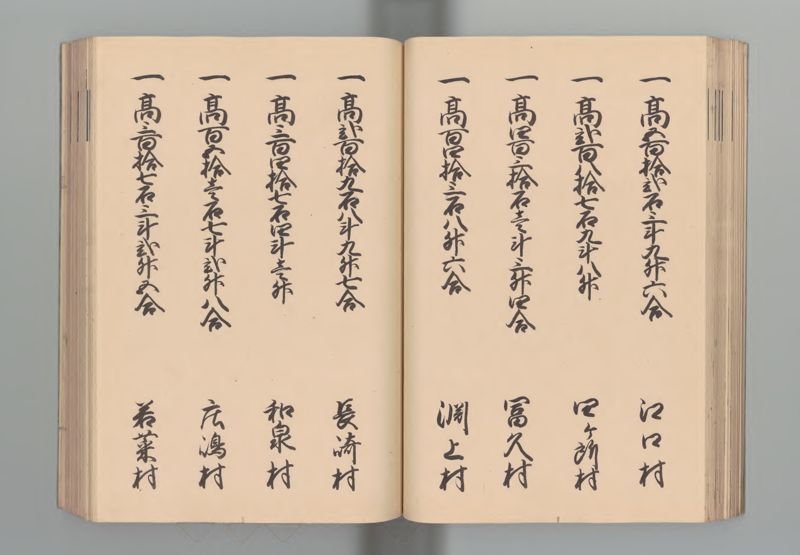 一高五百拾弐石三斗九升六合 江口村
一高弐百八拾七石九斗八升 四ヶ所村
一高四百三拾石壱斗三升四合 冨久村
一高百四拾三石八升六合 渕上村
一高弐百拾九石八斗九升七合 長崎村
一高三百四拾七石四斗壱升 和泉村
一高百五拾壱石七斗弐升八合 庄嶋村
一高三百拾七石三斗弐升五合 若菜村